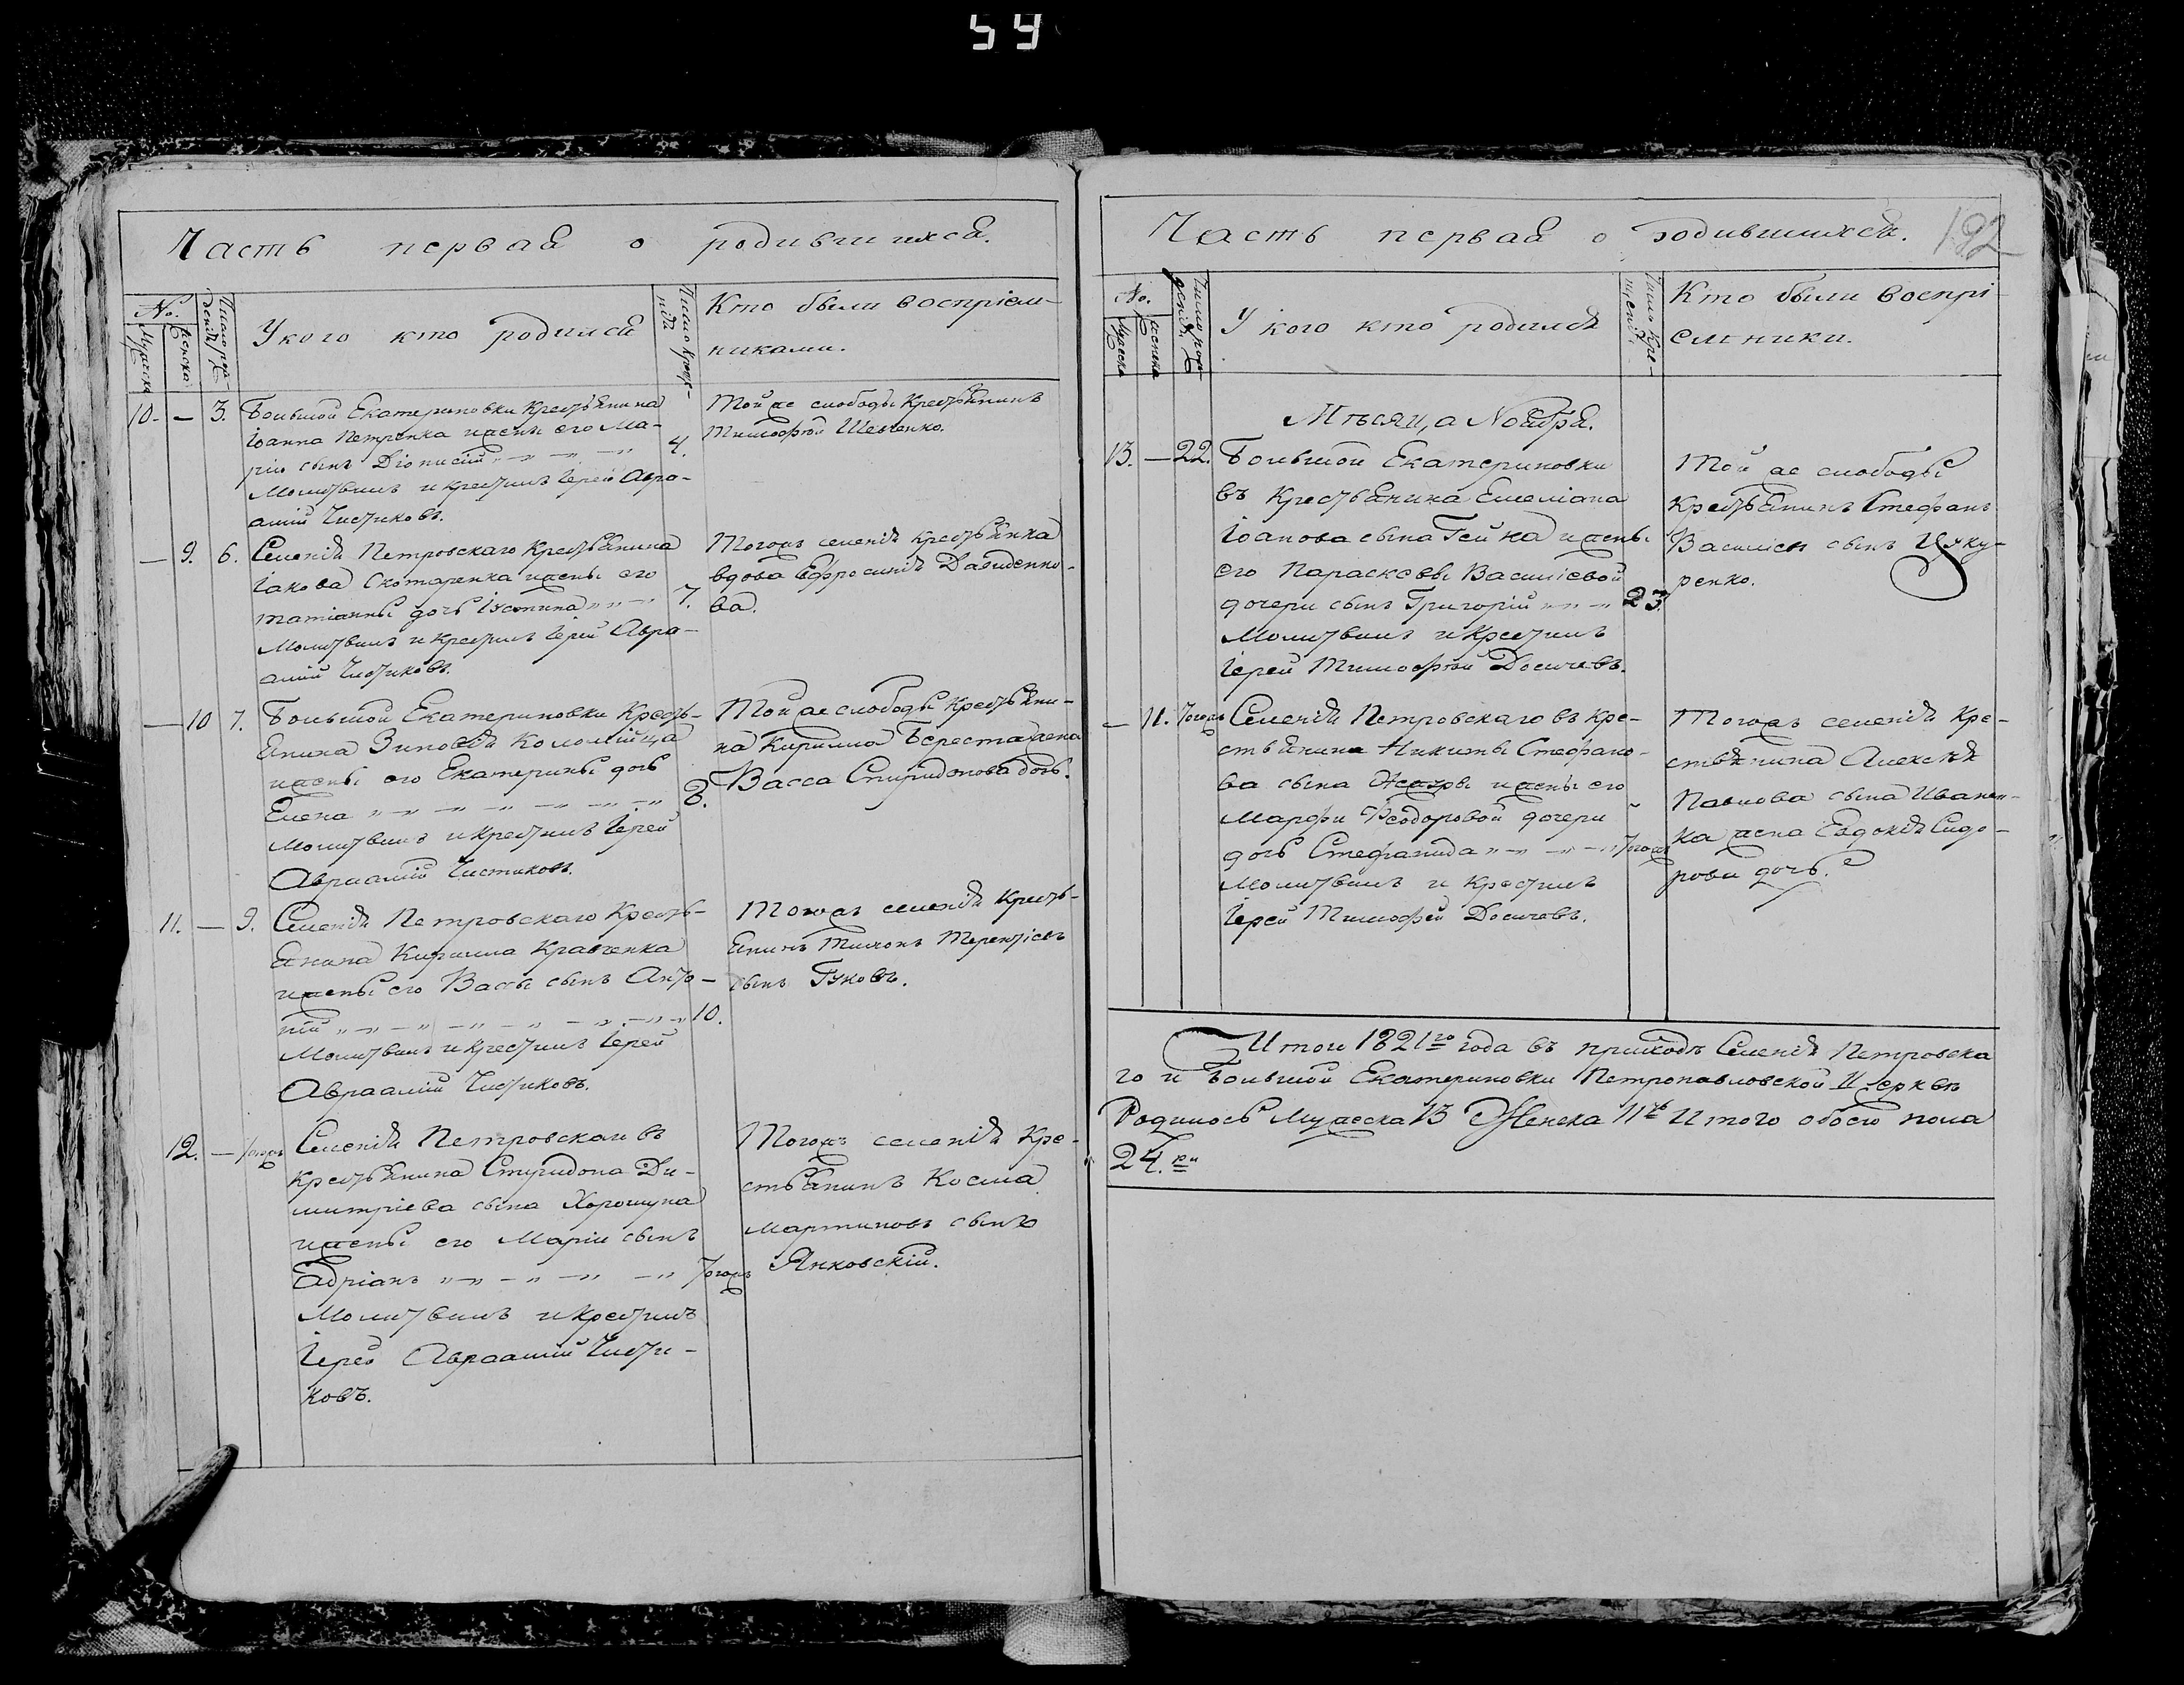 59
Часть первая о родившихся.
No.
Мужеска
Женска
Число рождения
У кого кто родился
Число крещения
Кто были воспріем-
никами.
10. — 3. Большой Екатериновки Крестьянина
Іоанна Петренка и жены его Ма-
ріи сынъ Діонисій „—„ —„ —„ 4.
Молитвилъ и крестилъ Іерей Авра-
амій Чистиковъ.
Той же слободы Крестьянинъ
Тимофей Шевченко.
— 9. 6. Селенія Петровскаго Крестьянина
Іакова Скотаренка и жены его
татіанны дочь Іустина „ „ — 7.
Молитвилъ и крестилъ Іерей Авра-
амій Чистиковъ.
Тогожъ селенія крестьянка
вдова Ефросинія Давиденко-
ва.
— 10 7. Большой Екатериновки Кресть-
янина Зиновія Коломійца
и жены его Екатерины дочь
Елена „—„ —„ —„ —„ —„ —„ 8.
Молитвилъ и крестилъ Іерей
Авраамій Чистиковъ.
Той же слободы крестьяни-
на Кирилла Береста жена
Васса Спиридонова дочь.
11. — 9. Селенія Петровскаго Кресть-
янина Кирилла Кравченка
и жены его Вассы сынъ Анто-
ній „—„ —„ —„ —„ —„ —„ 10.
Молитвилъ и крестилъ Іерей
Авраамій Чистиковъ.
Тогожъ селенія Кресть-
янинъ Тихонъ Терентіевъ
сынъ Гуковъ.
12. — тогожъ Селенія Петровскаго въ
Крестьянина Спиридона Ди-
митріева сына Хорошуна
и жены его Маріи сынъ
Адріанъ „—„ —„ —„ —„ тогожъ
Молитвилъ и крестилъ
Іерей Авраамій Чисти-
ковъ.
Тогожъ селенія Кре-
стьянинъ Косма
мартиновъ сынъ
Янковскій.
Часть первая о родившихся.
192
No.
Мужеска
женска
Число рождения
У кого кто родился
Число Крещенія.
Кто были воспрі-
емники.
Мѣсяца Ноября.
13. — 22. Большой Екатериновки
въ Крестьянина Емеліана
Іоанова сына Гейка и жены
его Параскевы Василіевой
дочери сынъ Григорій „—„ —„ 23.
Молитвилъ и Крестилъ
Іерей Тимофей Досичевъ.
Той же слободы
Крестьянинъ Стефанъ
Василіевъ сынъ Цуку-
ренко.
— 11. тогожъ Селенія Петровскаго въ Кре-
стьянина Никиты Стефано-
ва сына Жадзры и жены его
Марфы Ѳеодоровой дочери
дочь Стефанида „—„ —„ —„ тогожъ
Молитвилъ и Крестилъ
Іерей Тимофей Досичевъ.
Тогожъ селенія Кре-
стьянина Алексѣя
Павлова сына Иванен-
ка жена Евдокія Сидо-
рова дочь.
Итого 1821го года въ приходѣ Селенія Петровска
го и Большой Екатериновки Петропавловской Церквѣ
Родилось Мужеска 13 Женска 11ть Итого обоего пола
24.ри